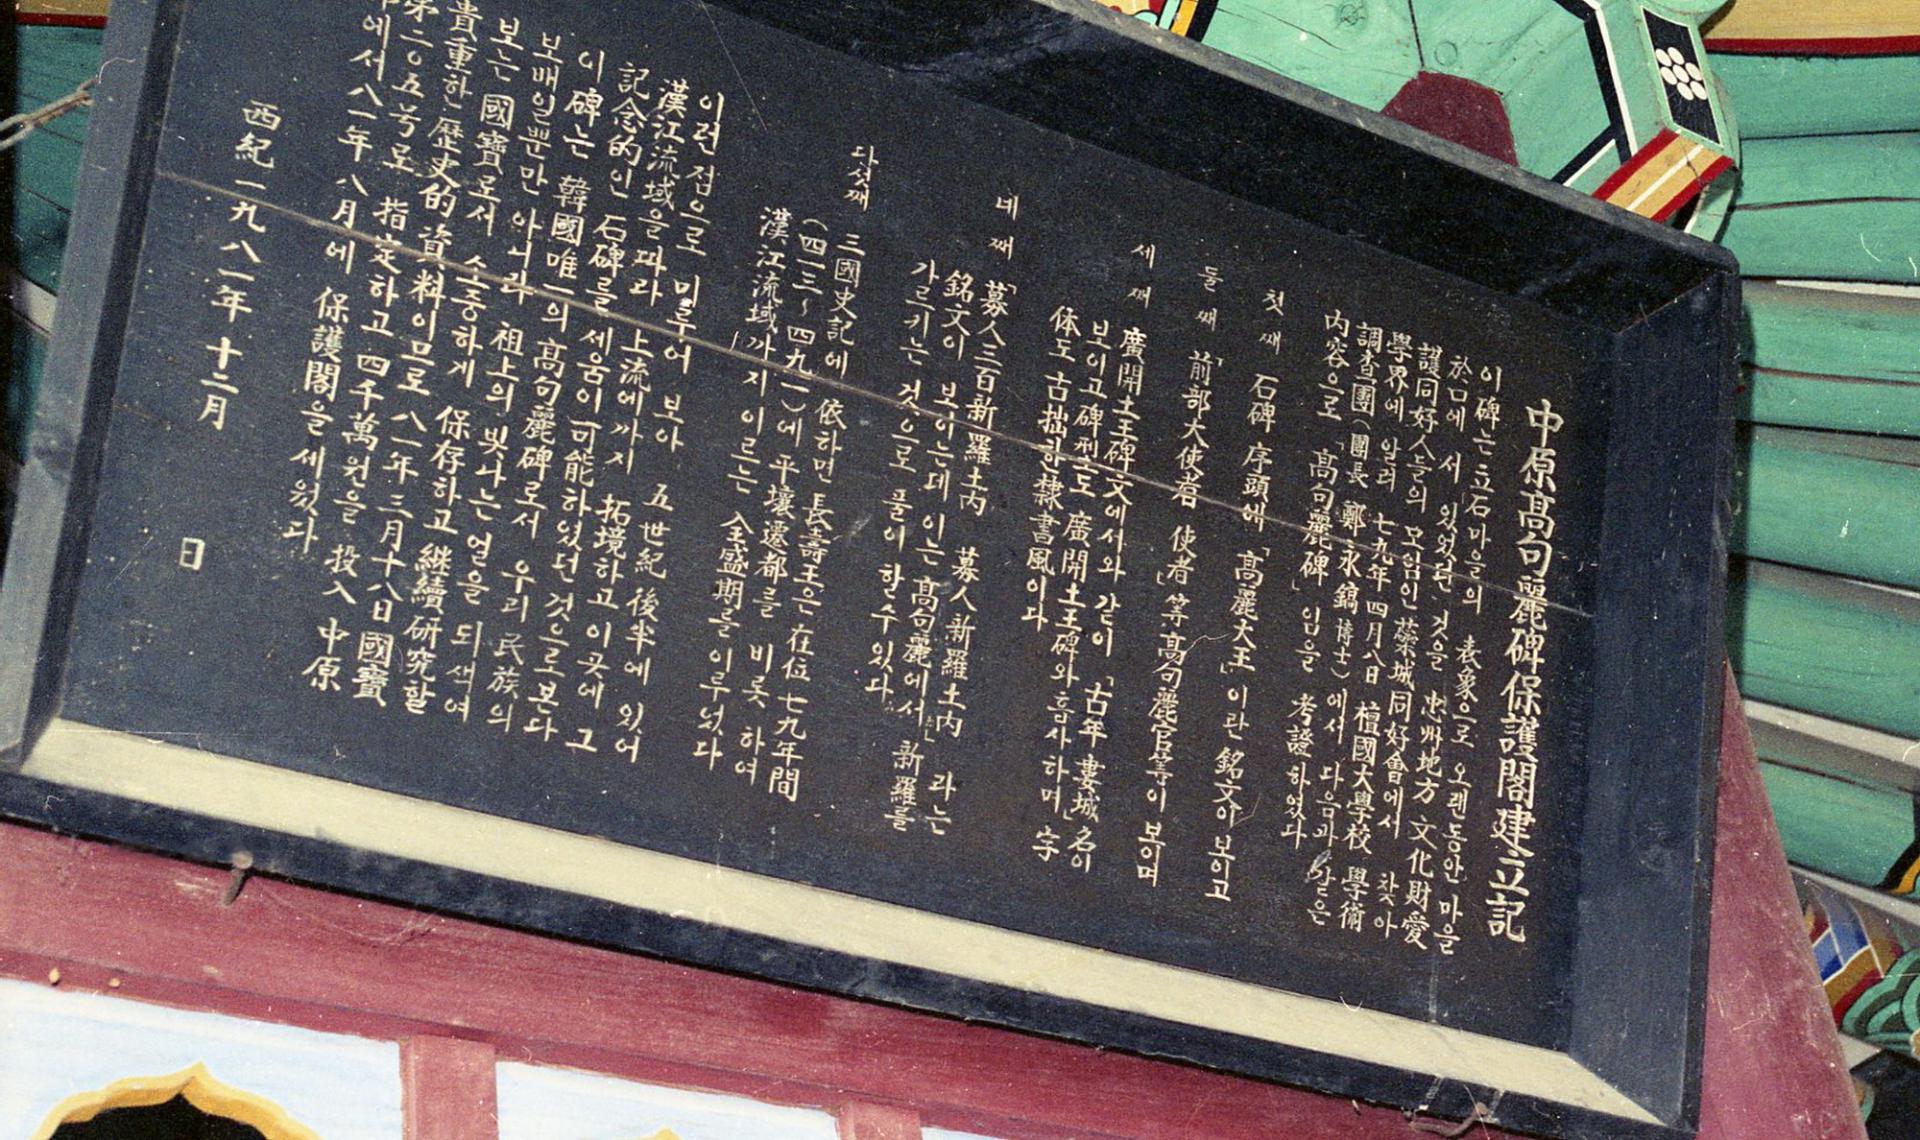 中原高句麗碑保護閣建立記
이 碑는 立石마을의 表象으로 오랜동안 마을
於口에 서 있었던 것을 忠州地方 文化財愛
護同好人들의 모임인 蘂城同好會에서 찾아
學界에 알려 七九年 四月八日 檀國大學校 學術
調査團(團長 鄭永鎬 博士)에서 다음과 같은
內容으로 「高句麗碑」임을 考證하였다
첫째 石碑 序頭에 「高麗大王」이란 銘文이 보이고
둘째 「前部大使者 使者」等 高句麗官等이 보이며
세째 廣開土王碑文에서와 같이 「古牟婁城名이
보이고 碑型도 廣開土王碑와 흡사하며」字
体도 古拙한 隸書風이다
네째 「募人三百新羅土內 募人新羅土內 라는
銘文이 보이는데 이는 高句麗에서」 新羅를
가르키는 것으로 풀이 할수있다
다섯째 三國史記에 依하면 長壽王은 在位 七九年間
(四一三~四九一)에 平壤遷都를 비롯 하여
漢江流域까지 이르는 全盛期를 이루었다
이런 점으로 미루어 보아 五世紀 後半에 있어
漢江流域을 따라 上流에까지 拓境하고 이곳에 그
記念的인 石碑를 세움이 可能하였던 것으로 본다
이 碑는 韓國唯一의 高句麗碑로서 우리 民族의
보배일뿐만 아니라 祖上의 빛나는 얼을 되새여
보는 國寶로서 소중하게 保存하고 継續研究할
貴重한 歷史的 資料이므로 八一年 三月十八日 國寶
第二〇五号로 指定하고 四千萬원을 投入 中原
에서 八一年 八月에 保護閣을 세웠다
西紀 一九八一年 十二月 日